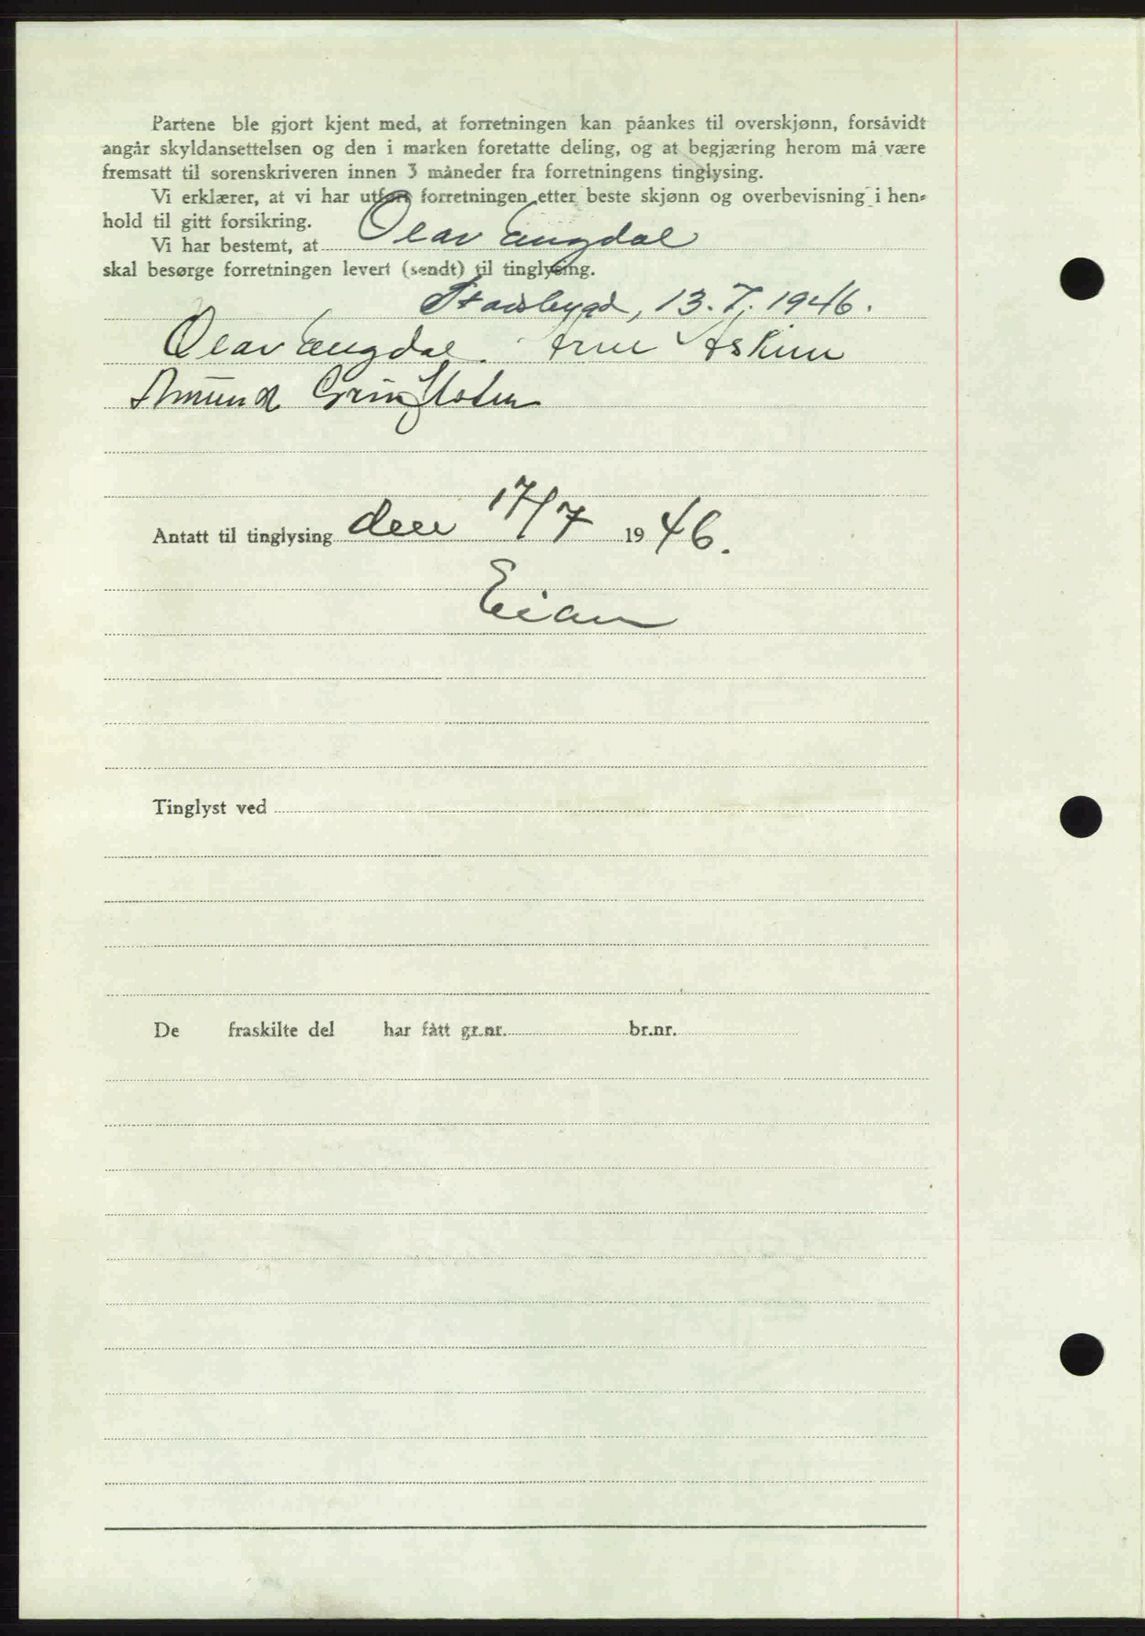 Partene ble gjort kjent med, at forretningen kan påankes til overskjønn, forsåvidt
angår skyldansettelsen og den i marken foretatte deling, og at begjæring herom må være
fremsatt til sorenskriveren innen 3 måneder fra forretningens tinglysing.
Vi erklærer, at vi har utført forretningen etter beste skjønn og overbevisning i hen-
hold til gitt forsikring.
Vi har bestemt, at Olav Engdal
skal besørge forretningen levert (sendt) til tinglysing.
Stadsbygd, 13.7.1946.
Olav Engdal. Arne Askim
Amund
Antatt til tinglysing den 17/7 1946.
Eian
Tinglyst ved
De fraskilte del har fått gr.nr. br.nr.